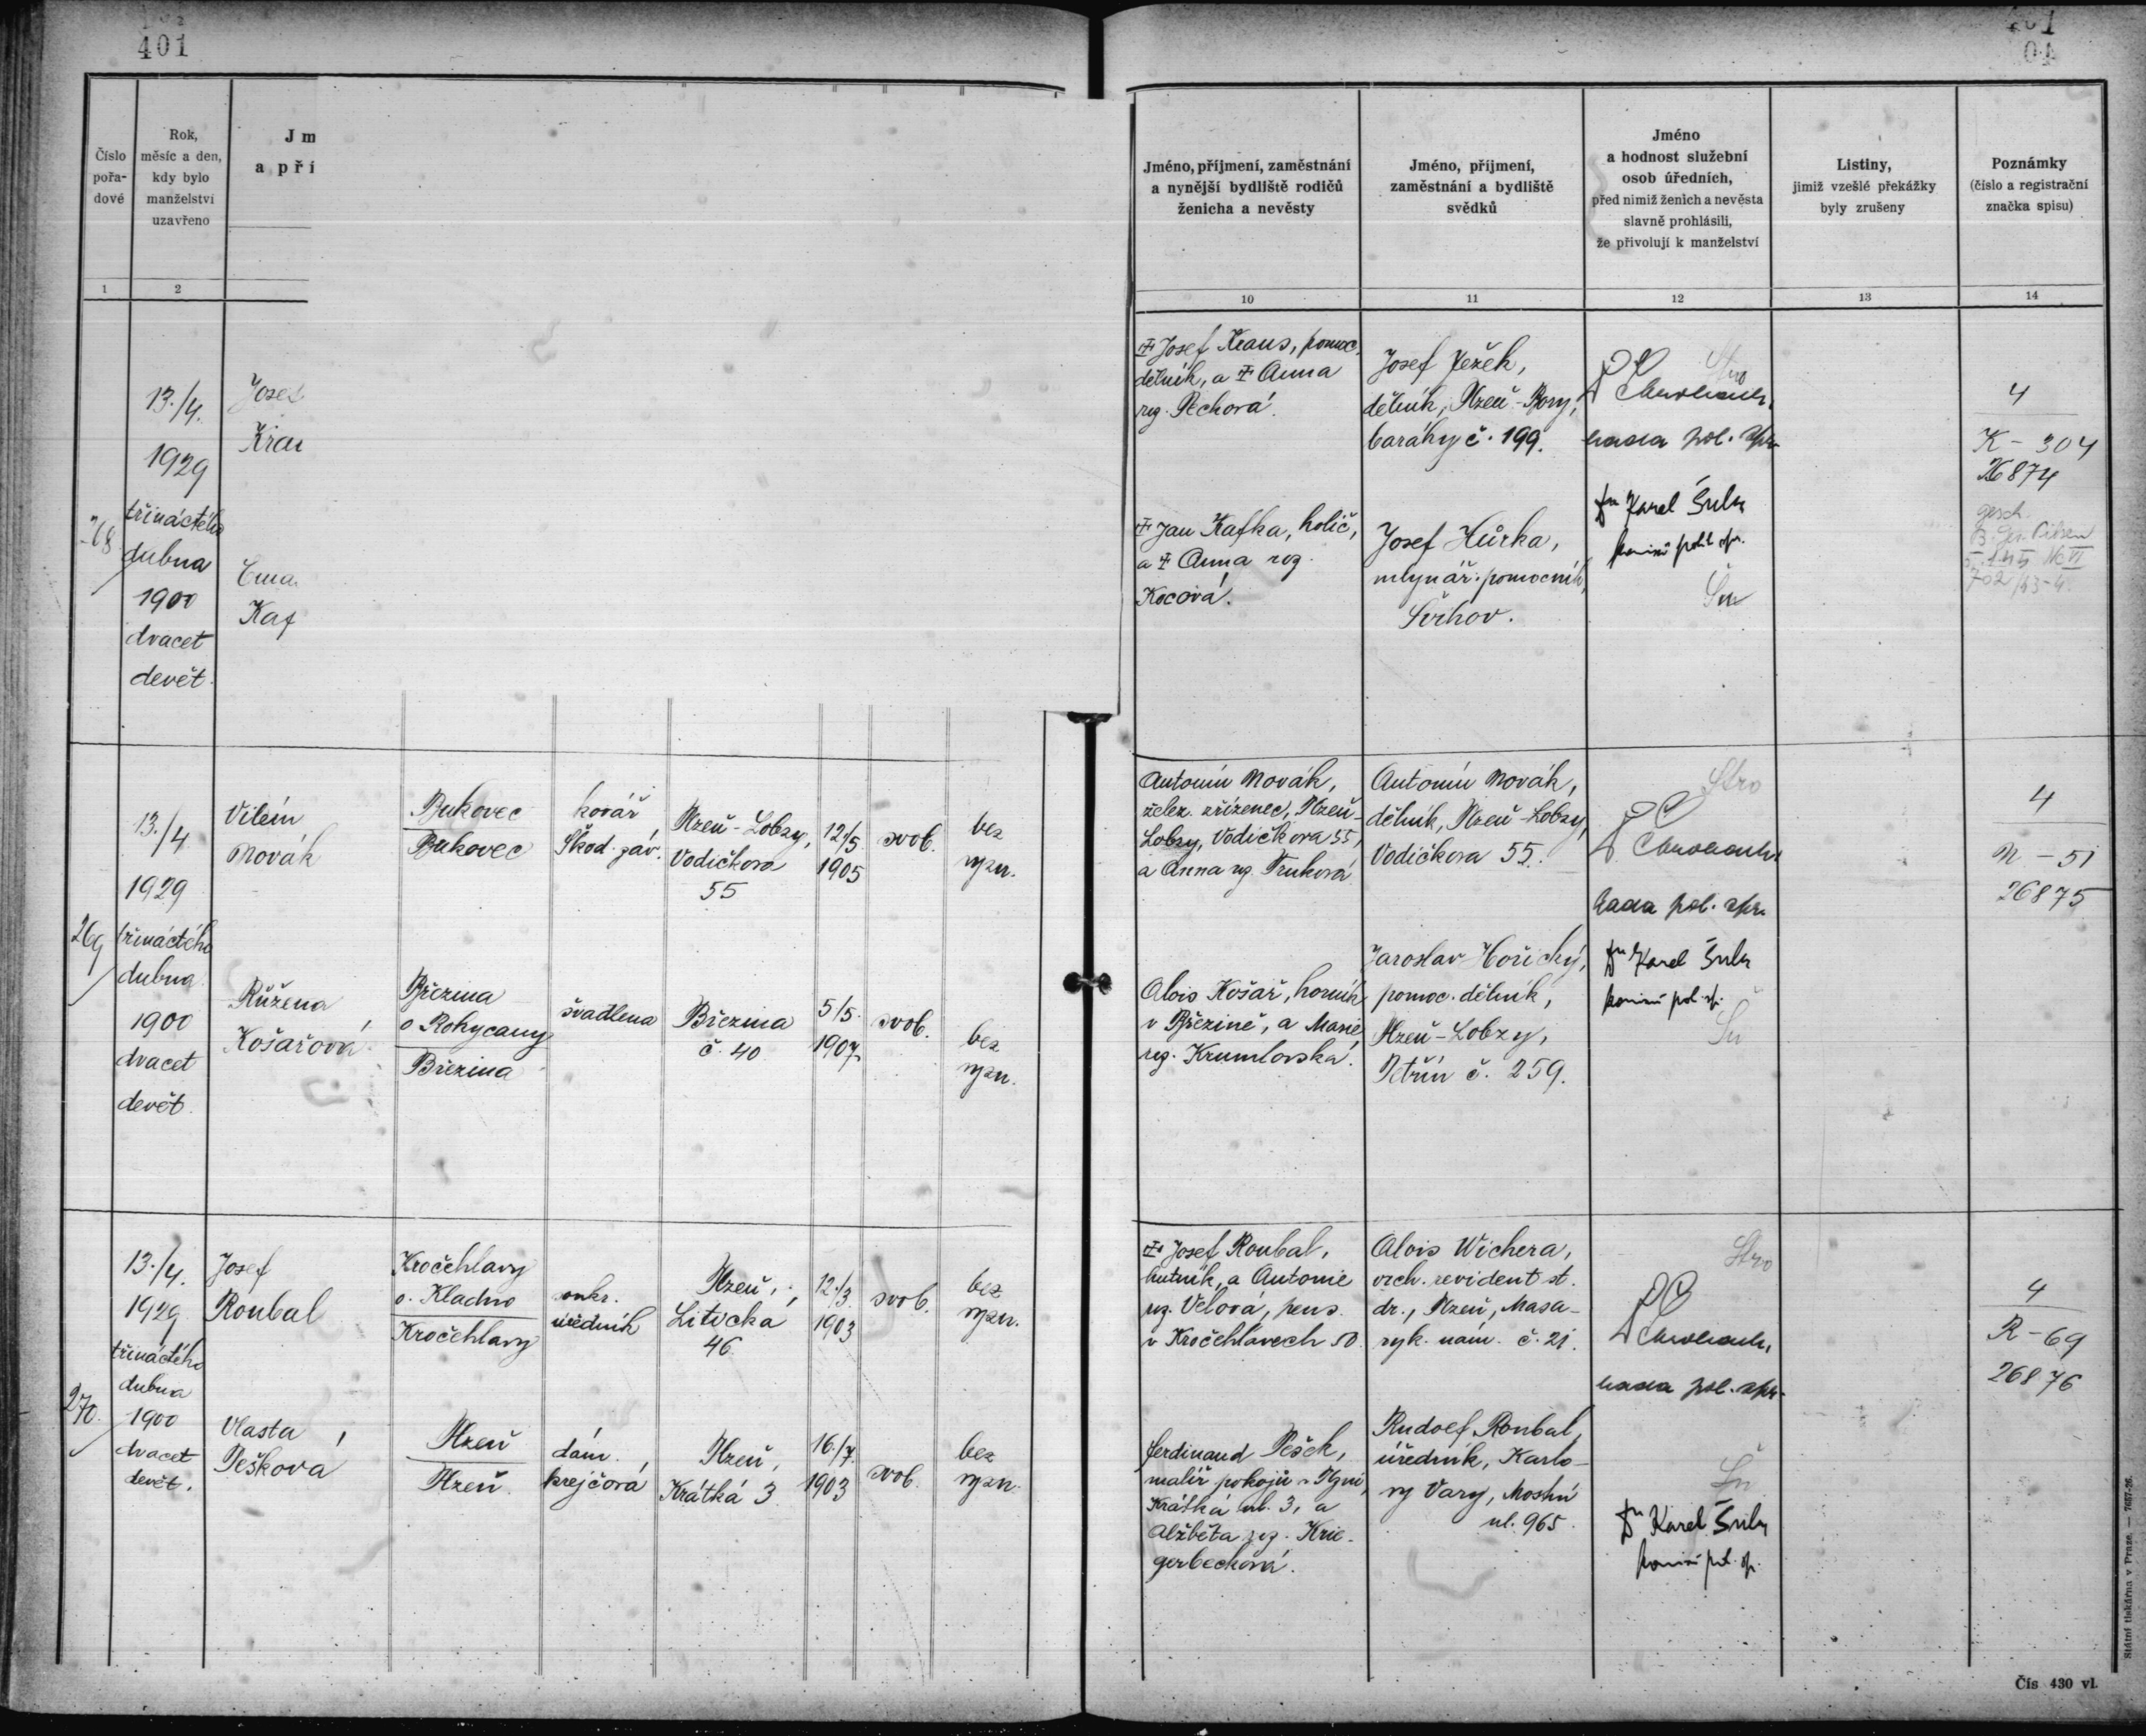 401
401
04
Číslo
pořa-
dové
Rok,
měsíc a den,
kdy bylo
manželství
uzavřeno
Jm
a pří
1
2
Jméno, příjmení, zaměstnání
a nynější bydliště rodičů
ženicha a nevěsty
Jméno, příjmení,
zaměstnání a bydliště
svědků
Jméno
a hodnost služební
osob úředních,
před nimiž ženich a nevěsta
slavně prohlásili,
že přivolují k manželství
Listiny,
jimiž vzešlé překážky
byly zrušeny
Poznámky
(číslo a registrační
značka spisu)
10
11
12
13
14
268
13./4.
1929
třináctého
dubna
1900
dvacet
devět.
Josef
Krau
Ema
Kaf
Josef Kraus, pomoc.
dělník, a Anna
roz. Pechová.
Jan Kafka, holič,
a Anna roz.
Kocová.
Josef Ježek,
dělník, Plzeň-Bory,
baráky č. 199.
Josef Hůrka,
mlynář. pomocník,
Švihov.
Stro
rada pol. spr.
Karel Šulc
komisař polit. spr.
Šu
4
K - 304
26874
gesch.
702/43-4.
269
13./4
1929
třináctého
dubna
1900
dvacet
devět.
Vilém
Novák
Bukovec
Bukovec
kovář
Škod. záv.
Plzeň-Lobzy,
Vodičkova
55
12./5
1905
svob.
bez
vyzn.
Růžena
Košařová.
Březina
o Rokycany
Březina
švadlena
Březina
č. 40
5/5.
1907.
svob.
bez
vyzn.
Antonín Novák,
želez. zřízenec, Plzeň-
Lobzy, Vodičkova 55,
a Anna roz. Trnková
Alois Košař, horník
v Březině, a Marie
roz. Krumlovská.
Antonín Novák,
dělník, Plzeň-Lobzy,
Vodičkova 55.
Jaroslav Hořický,
pomoc. dělník,
Plzeň-Lobzy,
Petřín č. 259.
Stro
rada pol. spr.
Karel Šulc
komisař pol. spr.
Šu
4
N - 51
26875
270.
13./4.
1929
třináctého
dubna
1900
dvacet
devět.
Josef
Roubal
Kročehlavy
o. Kladno
Kročehlavy
soukr.
úředník
Plzeň,
Litická
46
12./3
1903
svob.
bez
vyzn.
Vlasta
Pešková
Plzeň
Plzeň.
dám.
krejčová
Plzeň,
Krátká 3.
16./7.
1903
svob.
bez
vyzn.
Josef Roubal,
hutník, a Antonie
roz. Velová, pens.
v Kročehlavech 50.
Ferdinand Pešek,
malíř pokojů v Plzni,
Krátká ul. 3, a
Alžběta roz. Krie-
gerbecková.
Alois Wichera,
vrch. revident st.
dr., Plzeň, Masa-
ryk. nám. č. 21.
Rudolf Roubal,
úředník, Karlo-
vy Vary, Mostní
ul. 965.
Stro
rada pol. spr.
Šu
Karel Šulc
komisař pol. spr.
4
R - 69
26876
Státní tiskárna v Praze. — 7667-26.
Čís 430 vl.